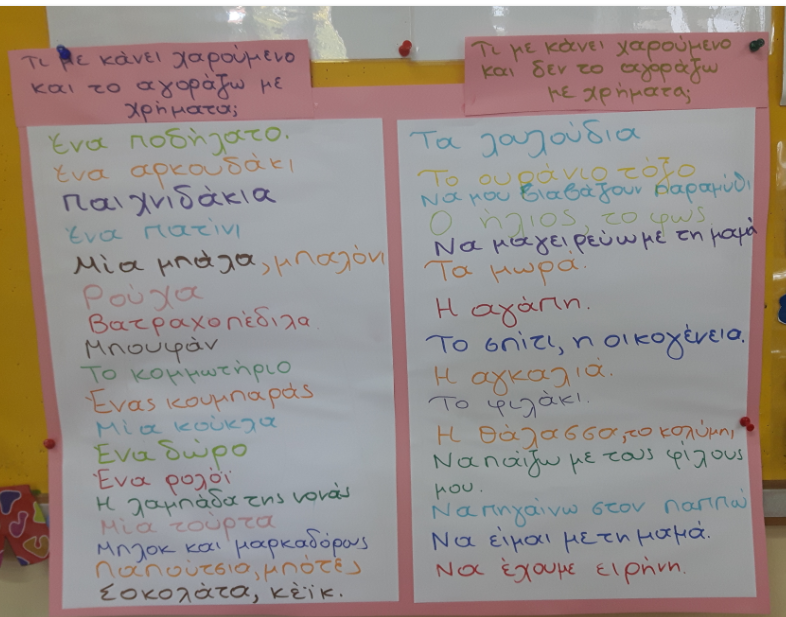 Τι με κάνει χαρούμενο
και το αγοράζω με
χρήματα;
Ένα ποδήλατο.
Ένα αρκουδάκι
Παιχνιδάκια
Ένα πατίνι
Μία μπάλα, μπαλόνι
Ρούχα
Βατραχοπέδιλα
Μπουφάν
Το κομμωτήριο
Ένας κουμπαράς
Μία κούκλα
Ένα δώρο
Ένα ρολόϊ
Η λαμπάδα της νονάς
Μία τούρτα
Μπλοκ και μαρκαδόρους
Παπούτσια, μπότες
Σοκολάτα, κέϊκ.
Τι με κάνει χαρούμενο
και δεν το αγοράζω
με χρήματα;
Τα λουλούδια
Το ουράνιο τόξο
Να μου διαβάζουν παραμύθι
Ο ήλιος, το φως
Να μαγειρεύωμε τη μαμά
Τα μωρά.
Η αγάπη.
Το σπίτι, η οικογένεια.
Η αγκαλιά.
Το φιλάκι.
Η θάλασσα, το κολύμπι,
Να παίζω με τους φίλους
μου.
Να πηγαίνω στον παππού
Να είμαι με τη μαμά.
Να έχουμε ειρήνη.